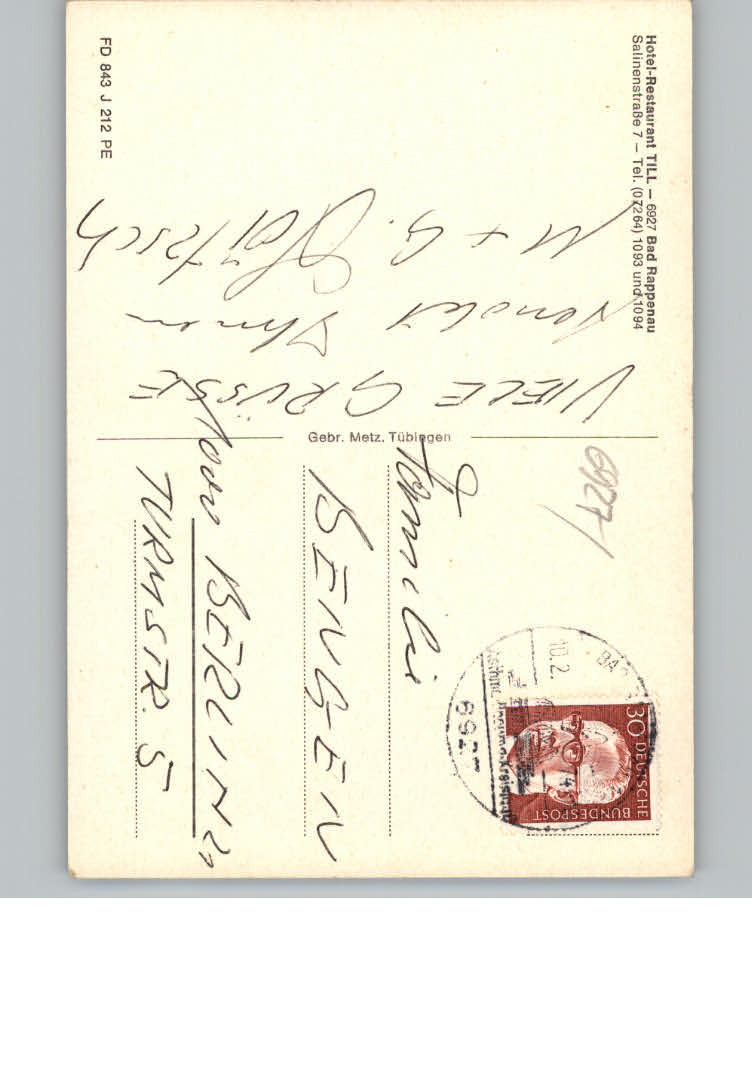 Hotel-Restaurant TILL – 6927 Bad Rappenau
Salinenstraße 7 – Tel. (07264) 1093 und 1094
VIELE GRÜSSE
sendet Ihnen
M + G.
FD 843 J 212 PE
Gebr. Metz, Tübingen
6927
30 DEUTSCHE
BUNDESPOST
BAD
10.2.
6927
Familie
BENGEN
1000 BERLIN 21
TURMSTR. 5